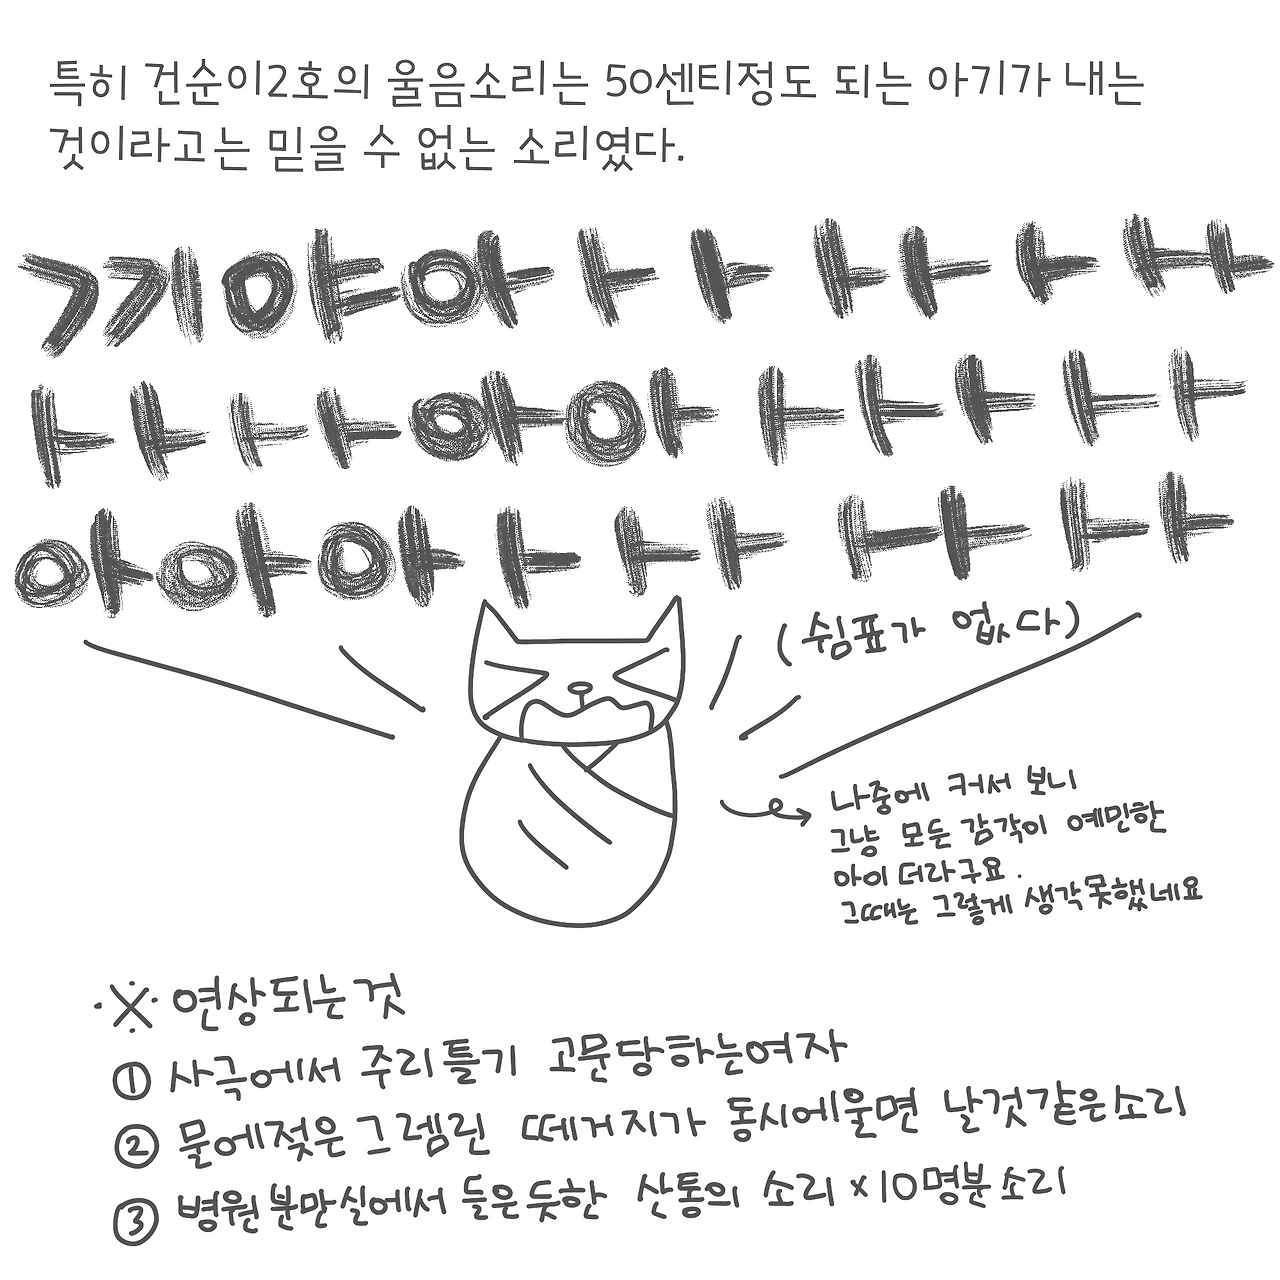 특히 건순이2호의 울음소리는 50센티정도 되는 아기가 내는
것이라고는 믿을 수 없는 소리였다.
끼야아ㅏㅏㅏㅏㅏㅏㅏ
ㅏㅏㅏㅏ아아ㅏㅏㅏㅏㅏ
아아아ㅏㅏㅏㅏㅏㅏㅏ
(쉼표가 없다)
나중에 커서 보니
그냥 모든 감각이 예민한
아이더라구요.
그때는 그렇게 생각못했네요
※ 연상되는것
① 사극에서 주리틀기 고문당하는여자
② 물에젖은그렘린 떼거지가 동시에울면 날것같은소리
③ 병원분만실에서 들은듯한 산통의 소리 x10명분소리